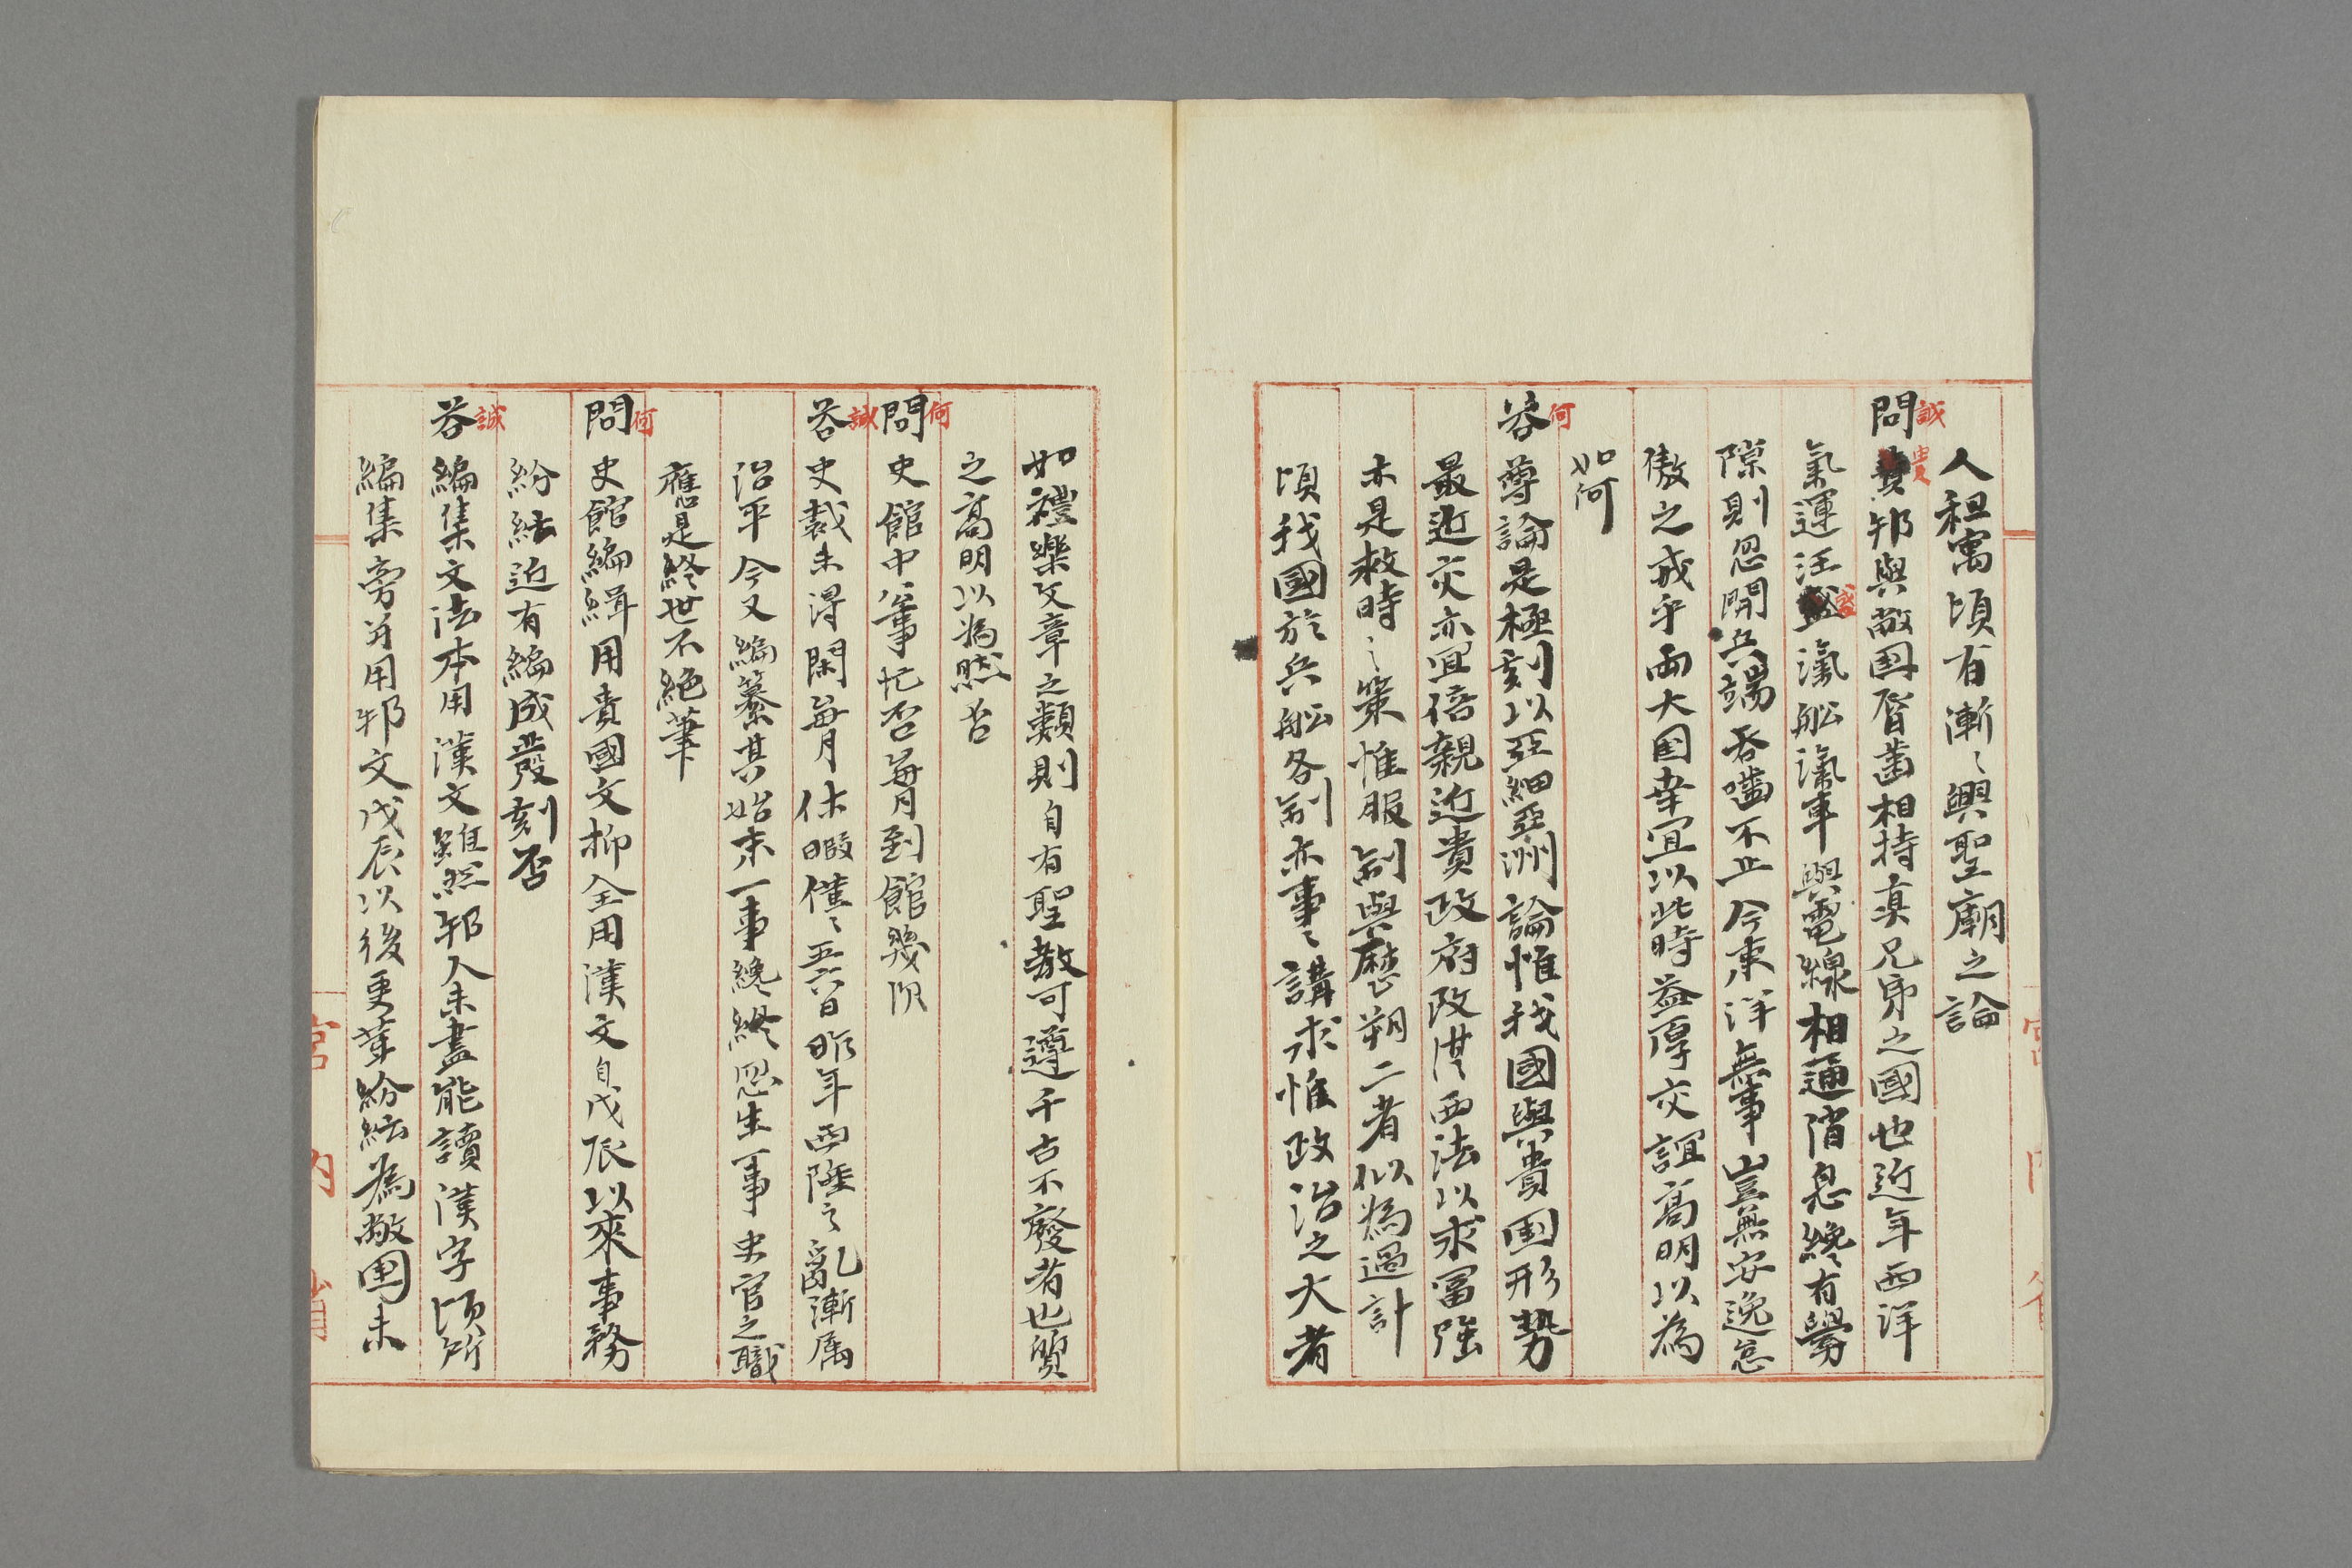 人租寓頃有漸〻興聖廟之論
誠
問貴邦與敝国唇齒相持真兄弟之國也近年西洋
貴
氣運汪盛滊舩滊車與電線相通消息纔有釁
盛
隙則忽開兵端呑噬不止今東洋無事豈無安逸怠
傲之戒乎両大国幸宜以此時益厚交誼高明以為
如何
何
答尊論是極刻以亞細亞洲論惟我國與貴国形勢
最近交亦宜倍親近貴政府改從西法以求冨強
亦是救時〻策惟服制與歷朔二者似為過計
頃我國於兵舩各制亦事〻講求惟政治之大者
如禮樂文章之類則自有聖教可遵千古不廢者也質
之高明以為然否
何
問史館中事忙否每月到館幾次
誠
答史裁未得閑每月休暇僅〻五六日昨年西陲之亂漸属
治平今又編纂其始末一事纔終忽生一事史官之職
應是終世不絶筆
何
問史館編緝用貴國文抑全用漢文自戊辰以來事務
紛紜近有編成發刻否
誠
答編集文法本用漢文雖然邦人未盡能讀漢字頃所
編集旁并用邦文戊辰以後更革紛紜為敝国未
宮內省